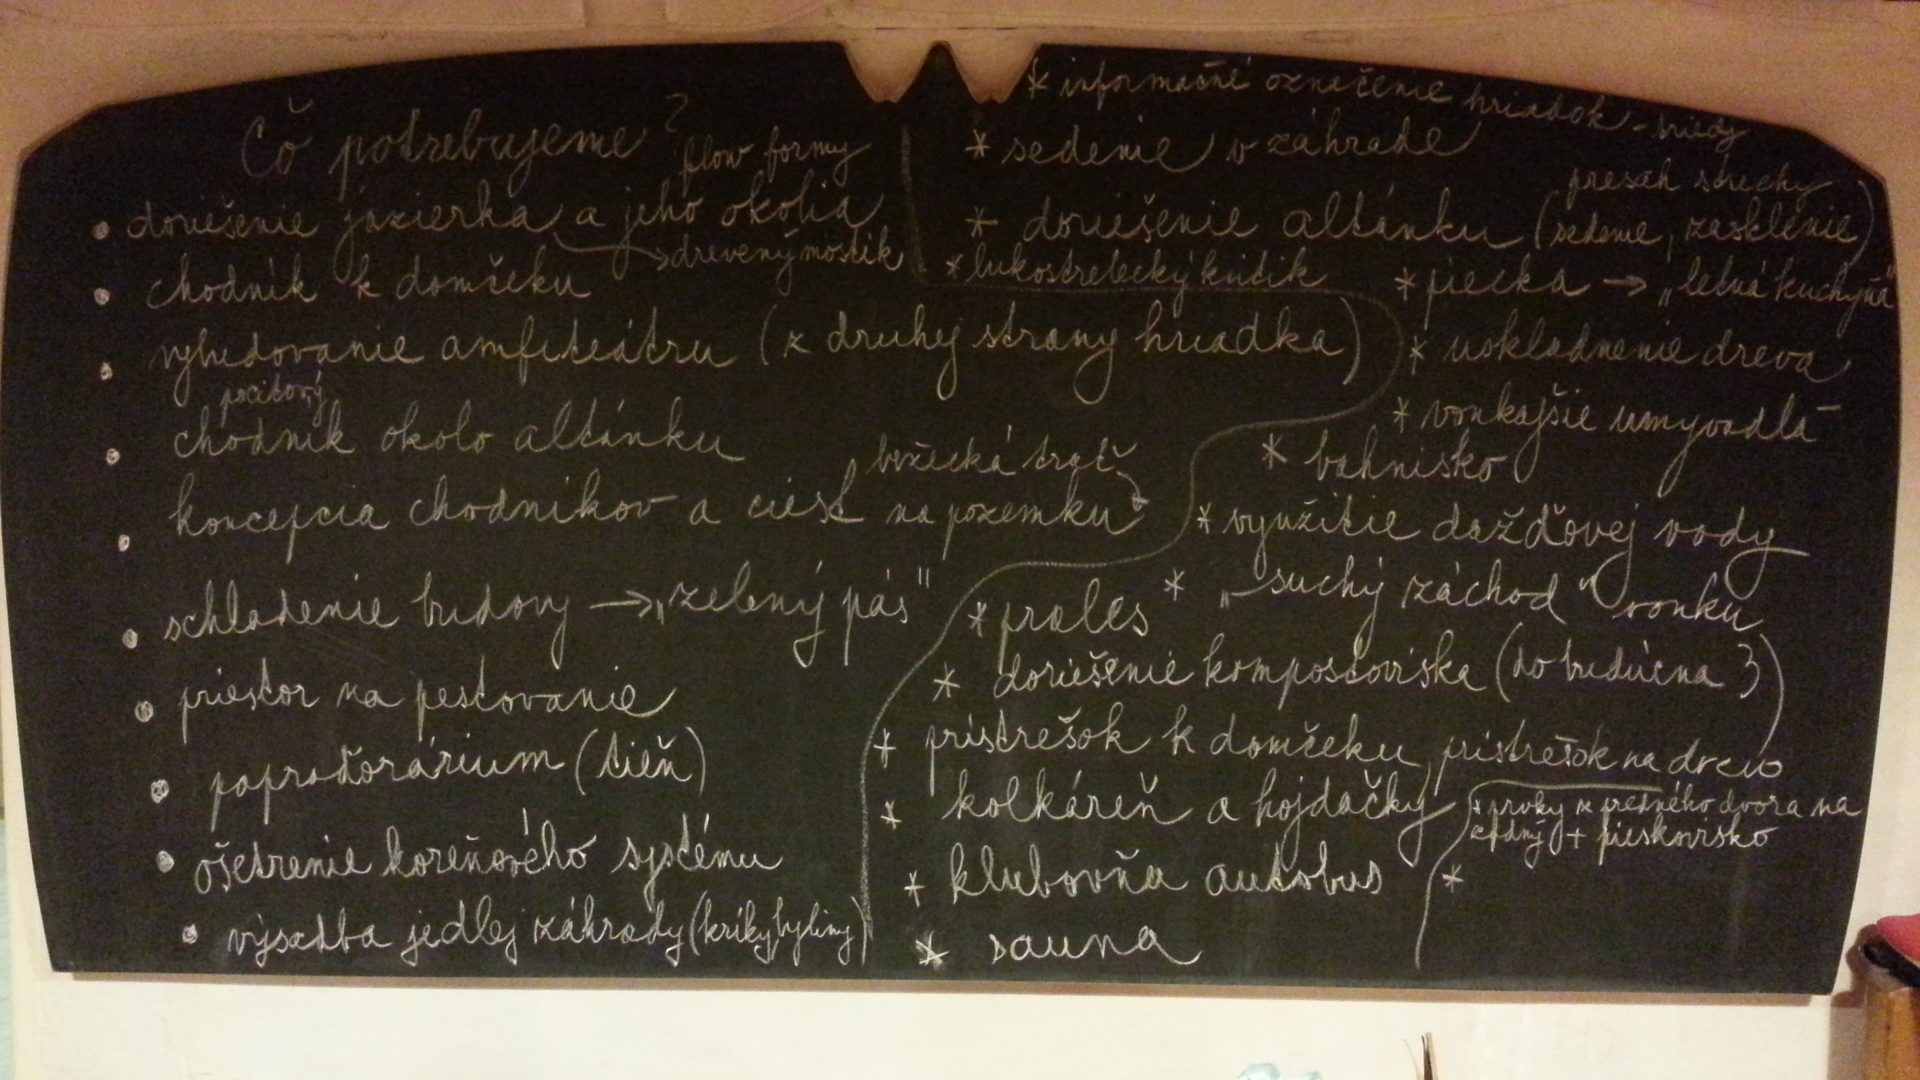 Čo potrebujeme?
flow formy
• doriešenie jazierka a jeho okolia
→ drevený mostík
• chodník k domčeku
• vybudovanie amfiteátru (z druhej strany hriadka)
pocitový
• chodník okolo altánku
bežecká trať
• koncepcia chodníkov a ciest na pozemku
• schladenie budovy → „zelený pás"
• priestor na pestovanie
• papraďorárium (tieň)
• ošetrenie koreňového systému
• výsadba jedlej záhrady (kríky byliny)
* informačné označenie hriadok - triedy
* sedenie v záhrade
presah strechy
* doriešenie altánku (sedenie, zasklenie)
* lukostrelecký kútik
* piecka → „letná kuchyňa"
* uskladnenie dreva
* vonkajšie umyvadlá
* bahnisko
* využitie dažďovej vody
* „suchý záchod" vonku
* prales
* doriešenie kompostoviska (do budúcna?)
* prístrešok k domčeku, prístrešok na drevo
* kolkáreň a hojdačky
* klubovňa autobus
* sauna
* prvky z predného dvora na
zadný + pieskovisko
*